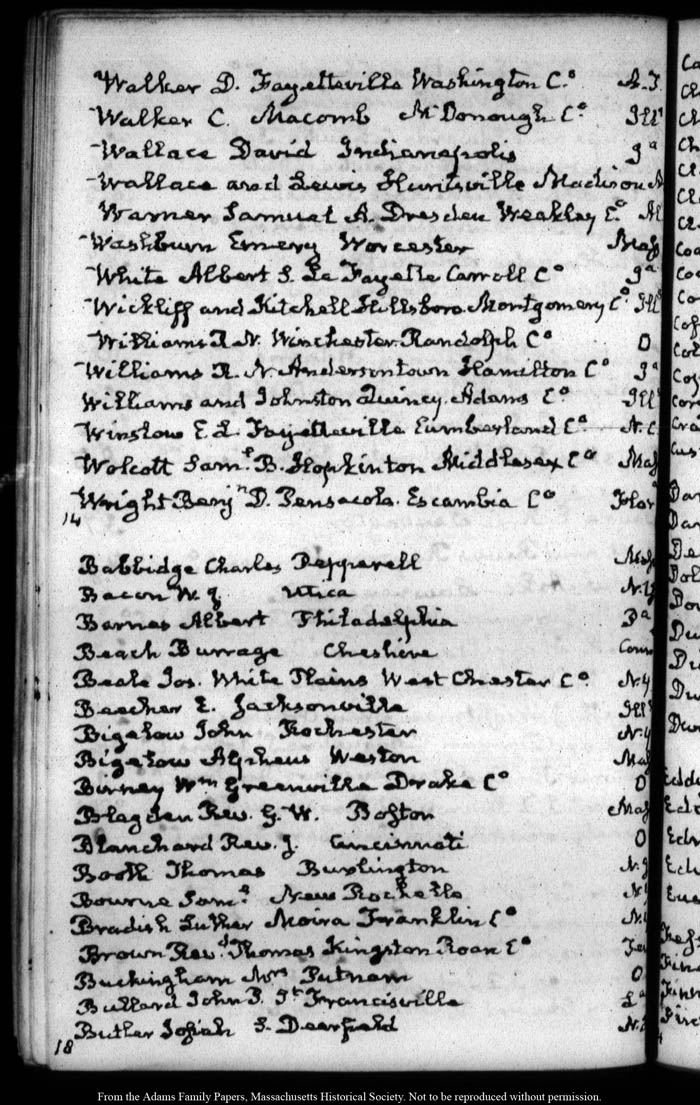 Walker D. Fayetteville Washington Co. A.T.
Walker C. Macomb McDonough Co. Ill
Wallace David Indianapolis Ia
Wallace and Lewis Huntsville Madison A
Warner Samuel A. Dresden Weakley Co
Washburn Emery Worcester Mass
White Albert S. La Fayette Carroll Co Ia
Wickliff and Kitchell Hillsboro. Montgomery Co. Ill
Williams R. N. Winchester. Randolph Co O
Williams R. N. Andersontown Hamilton Co Ia
Williams and Johnston Quincy. Adams Co. Ill
Winslow E. L. Fayetteville Cumberland Co. N.C
Wolcott Saml. B. Hopkinton Middlesex Co Mas
Wright Benjn D. Pensacola. Escambia Co Flor
14
Babbidge Charles Pepperell Mas
Bacon W. J. Utica N.Y
Barnes Albert Philadelphia Pa
Beach Burrage Cheshire Conn
Beale Jos. White Plains West Chester Co. N.Y
Beecher E. Jacksonville Ill
Bigelow John Rochester N.Y
Bigelow Alpheus Weston Mas
Birney Wm Greenville Drake Co O
Blagden Rev. G. W. Boston Mas
Blanchard Rev. J. Cincinnati O
Booth Thomas Burlington N.J
Bourne Saml. New Rochelle N.Y
Bradish Luther Moira Franklin Co N.Y
Brown Revd. Thomas Kingston Roan Co Ten
Buckingham Mrs Putnam O
Bullard John P. St Francisville La
Butler Josiah S. Deerfield N.
18
From the Adams Family Papers, Massachusetts Historical Society. Not to be reproduced without permission.